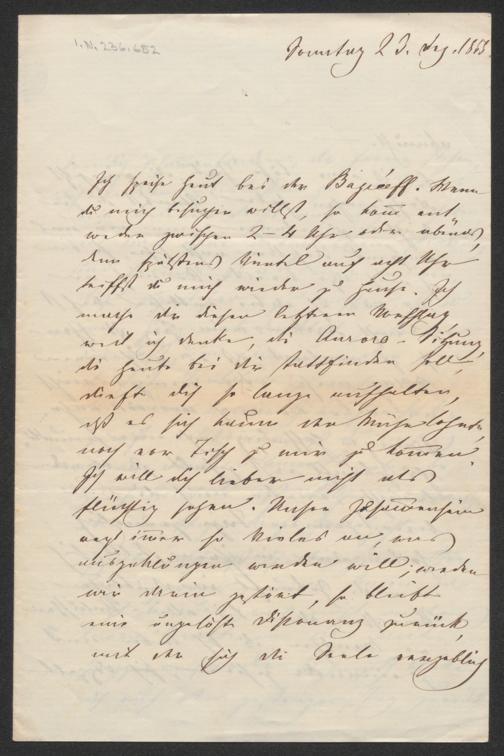 I.N. 236.652
Sonntag 23. Dez. 1888.
Ich speise heut bei der Bagréeff. Wenn
du mich besuchen willst, so kom̄ ent
weder zwischen 2–4 Uhr oder abends,
denn spätstens Viertel auf acht Uhr
triffst du mich wieder zu Hause. Ich
mache dir diesen letzteren Vorschlag
weil ich denke, die Aurora-Sitzung
die heute bei dir stattfinden soll,
dürft dich so lange aufhalten,
daß es sich kaum der Mühe lohnte,
noch vor Tisch zu mir zu kom̄en.
Ich will dich lieber nicht als
flüchtig sehen. Unser Zusam̄ensein
regt im̄er so Vieles an, was
ausgeklungen werden will; werden
wir darin gestört, so bleibt
eine ungelöste Dissonanz zurück,
mit der sich die Seele vergeblich